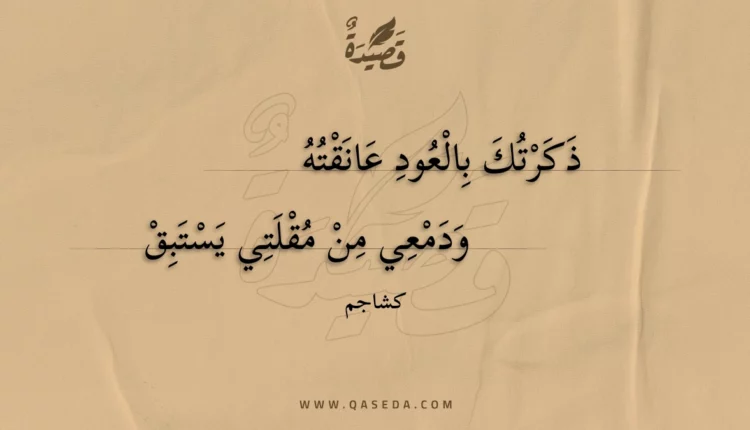 قَصِيدَةٌ
ذَكَرْتُكَ بِالْعُودِ عَانَقْتُهُ
وَدَمْعِي مِنْ مُقْلَتِي يَسْتَبِقْ
كشاجم
WWW.QASEDA.COM